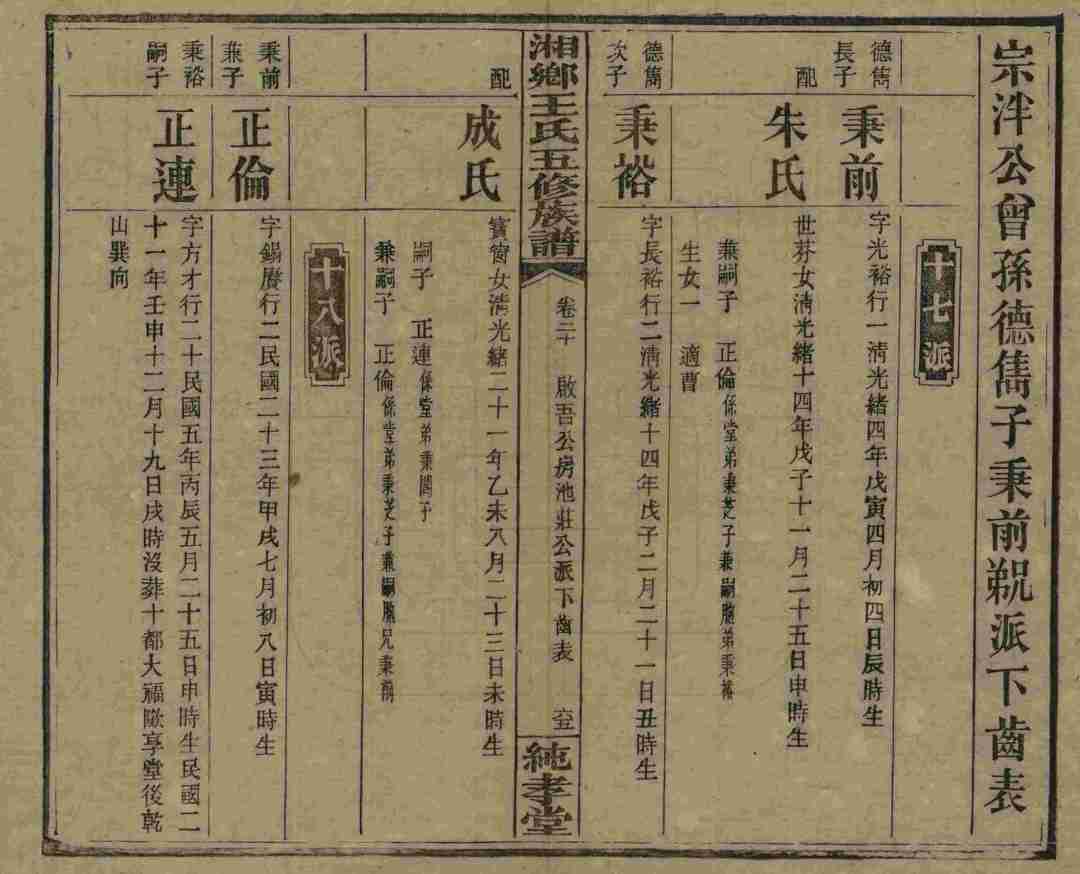 宗泮公曾孫德雋子秉前㒭派下齒表
十七派
德雋
長子
秉前
字光裕行一清光緒四年戊寅四月初四日辰時生
配
朱氏
世芬女清光緒十四年戊子十一月二十五日申時生
兼嗣子 正倫係堂弟秉芝子兼嗣胞弟秉裕
生女一 適曹
德雋
次子
秉裕
字長裕行二清光緒十四年戊子二月二十一日丑時生
湘鄉王氏五修族譜
卷二十 啟吾公房池莊公派下齒表
純孝堂
配
成氏
女清光緒二十一年乙未八月二十三日未時生
嗣子 正連係堂弟秉閣子
兼嗣子 正倫係堂弟秉芝子兼嗣胞兄秉前
十八派
秉前
兼子
正倫
字錫賡行二民國二十三年甲戌七月初八日寅時生
秉裕
嗣子
正連
字方才行二十民國五年丙辰五月二十五日申時生民國二
十一年壬申十二月十九日戌時沒葬十都大福歐享堂後乾
山巽向